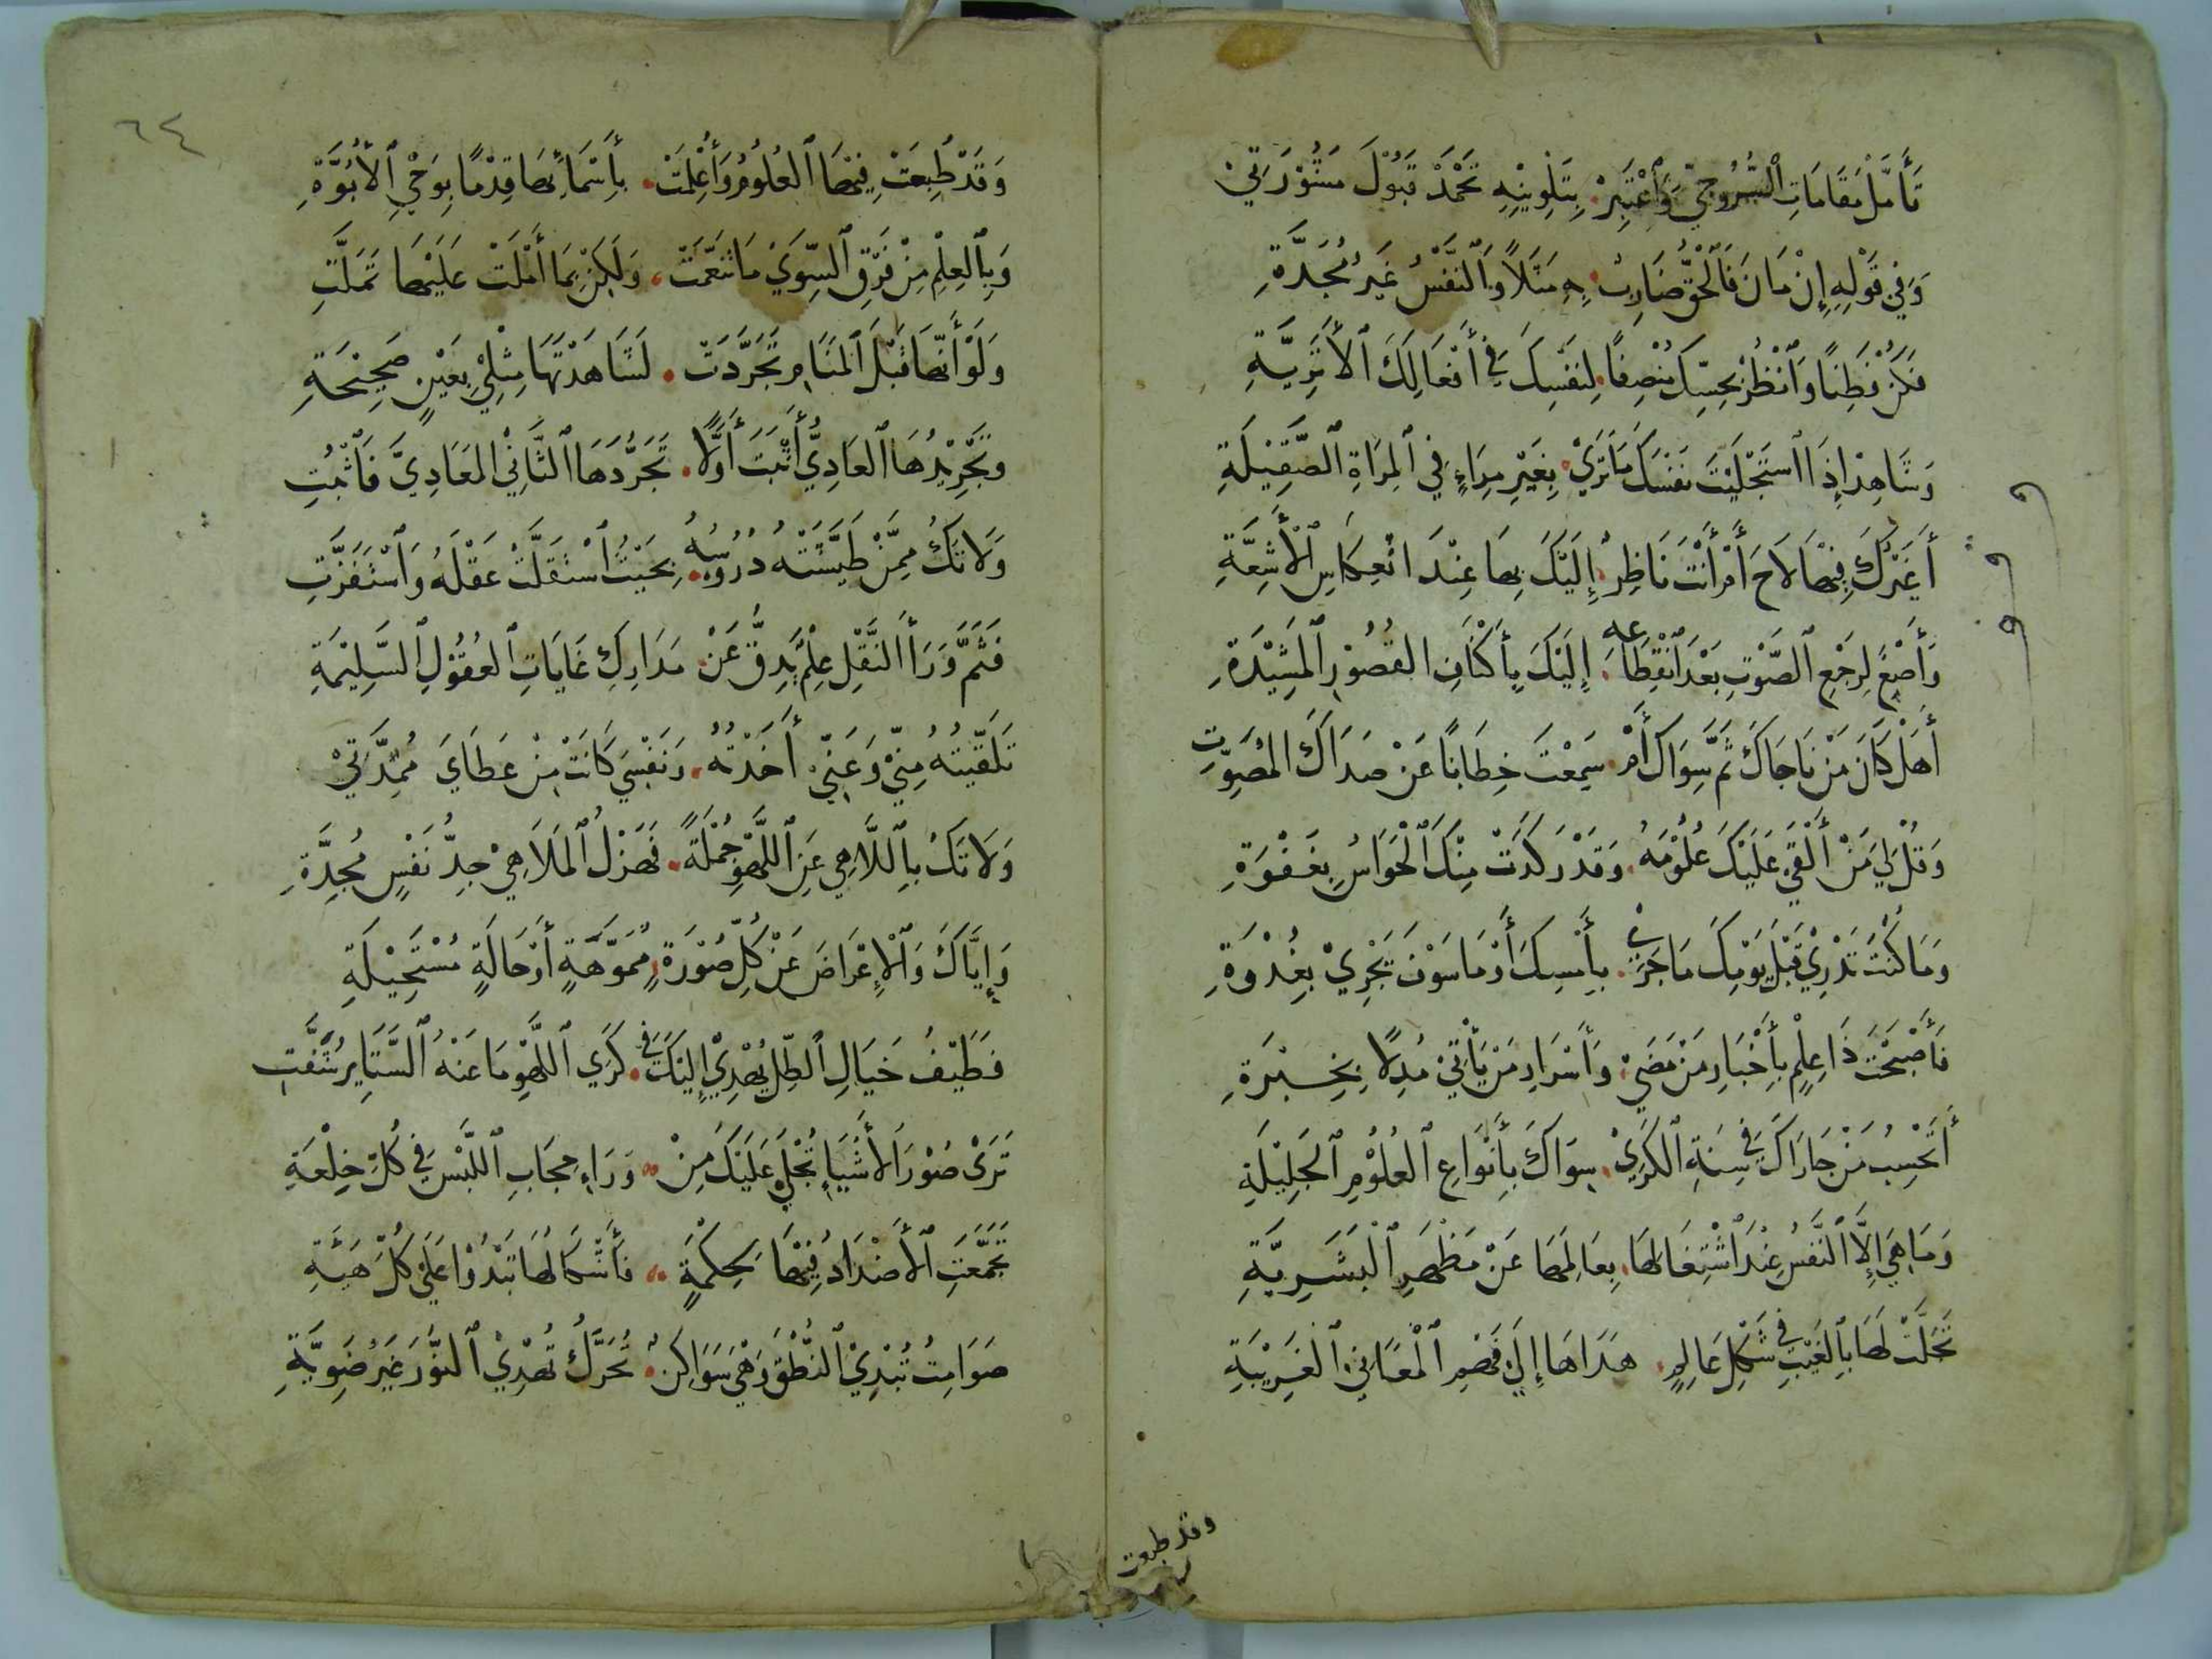 تَأَمَّلْ مَقَامَاتِ ٱلسَّرُوجِيِّ وَٱعْتَبِرْ . بِتَلْوِينِهِ تَحْمَدْ قَبُوْلَ مَشُوْرَتِيْ
وَفِي قَوْلِهِ إِنْ مَانَ فَٱلْحَقُّ ضَارِبٌ . بِهِ مَثَلًا وَٱلنَّفْسُ غَيْرُ مُجِدَّةِ
فَكُنْ فَطِنًا وَٱنْظُرْ بِحِسِّكَ مُنْصِفًا . لِنَفْسِكَ فِي أَفْعَالِكَ ٱلْأَثَرِيَّةِ
وَشَاهِدْ إِذَا ٱسْتَجْلَيْتَ نَفْسَكَ مَا تَرَيْ . بِغَيْرِ مِرَاءٍ فِي ٱلْمِرَاةِ ٱلصَّقِيْلَةِ
أَغَيْرُكَ فِيْهَا لَاحَ أَمْ أَنْتَ نَاظِرٌ . إِلَيْكَ بِهَا عِنْدَ ٱنْعِكَاسِ ٱلْأَشِعَّةِ
وَأَصْغِ لِرَجْعِ ٱلصَّوْتِ بَعْدَ ٱنْقِطَاعِهِ . إِلَيْكَ بِأَكْنَافِ ٱلْقُصُوْرِ ٱلْمَشِيْدَةِ
أَهَلْ كَانَ مَنْ نَاجَاكَ ثَمَّ سِوَاكَ أَمْ . سَمِعْتَ خِطَابًا عَنْ صَدَاكَ ٱلْمُصَوِّتِ
وَقُلْ لِيَ مَنْ أَلْقَيْ عَلَيْكَ عُلُوْمَهُ . وَقَدْ رَكَدَتْ مِنْكَ ٱلْحَوَاسُ بِغَفْوَةِ
وَمَا كُنْتَ تَدْرِيْ قَبْلَ يَوْمِكَ مَا جَرَيْ . بِأَمْسِكَ أَوْ مَا سَوْفَ يَجْرِيْ بِغُدْوَةِ
فَأَصْبَحْتَ ذَا عِلْمٍ بِأَخْبَارِ مَنْ مَضَيْ . وَأَسْرَارِ مَنْ يَأْتِيْ مُدِلًّا بِخِبْرَةِ
أَتَحْسِبُ مَنْ جَارَاكَ فِي سِنَةِ ٱلْكَرَيْ . سِوَاكَ بِأَنْوَاعِ ٱلْعُلُوْمِ ٱلْجَلِيْلَةِ
وَمَا هِيَ إِلَّا ٱلنَّفْسُ عِنْدَ ٱشْتِغَالِهَا . بِعَالَمِهَا عَنْ مَظْهَرِ ٱلْبَشَرِيَّةِ
تَجَلَّتْ لَهَا بِٱلْغَيْبِ فِي شَكْلِ عَالِمٍ . هَدَاهَا إِلَي فَهْمِ ٱلْمَعَانِي ٱلْغَرِيْبَةِ
وقد طبعت
٦٤
وَقَدْ طُبِعَتْ فِيْهَا ٱلْعُلُوْمُ وَأُعْلِمَتْ . بِأَسْمَائِهَا قِدْمًا بِوَحْيِ ٱلْأُبُوَّةِ
وَبِٱلْعِلْمِ مِنْ فَرْقِ ٱلسِّوَيْ مَا تَنَعَّمَتْ . وَلَكِنْ بِمَا أَمْلَتْ عَلَيْهَا تَمَلَّتِ
وَلَوْ أَنَّهَا قَبْلَ ٱلْمَنَامِ تَجَرَّدَتْ . لَشَاهَدْتَهَا مِثْلِيْ بِعَيْنٍ صَحِيْحَةِ
وَتَجْرِيْدُهَا ٱلْعَادِيُّ أَثْبَتَ أَوَّلًا . تَجَرُّدَهَا ٱلثَّانِيْ ٱلْمَعَادِيَّ فَٱثْبُتِ
وَلَا تَكُ مِمَّنْ طَيَّشَتْهُ دُرُوْسُهُ . بِحَيْثُ ٱسْتَقَلَّتْ عَقْلَهُ وَٱسْتَفَزَّتِ
فَثَمَّ وَرَاءَ ٱلنَّقْلِ عِلْمٌ يَدِقُّ عَنْ . مَدَارِكِ غَايَاتِ ٱلْعُقُوْلِ ٱلسَّلِيْمَةِ
تَلَقَّيْتُهُ مِنِّيْ وَعَنِّيْ أَخَذْتُهُ . وَنَفْسِيَ كَانَتْ مِنْ عَطَايَ مُمِدَّتِيْ
وَلَا تَكُ بِٱللَّاهِيْ عَنِ ٱللَّهْوِ جُمْلَةً . فَهَزْلُ ٱلْمَلَاهِيْ جِدُّ نَفْسٍ مُجِدَّةِ
وَإِيَّاكَ وَٱلْإِعْرَاضَ عَنْ كُلِّ صُوْرَةٍ . مُمَوَّهَةٍ أَوْ حَالَةٍ مُسْتَحِيْلَةِ
فَطَيْفُ خَيَالِ ٱلظِّلِّ يُهْدِيْ إِلَيْكَ فِي . كَرَي ٱللَّهْوِ مَا عَنْهُ ٱلسَّتَايِرُ شَفَّتِ
تَرَىْ صُوْرَ ٱلْأَشْيَاءِ تُجْلَي عَلَيْكَ مِنْ . وَرَاءِ حِجَابِ ٱللَّبْسِ فِي كُلِّ خِلْعَةِ
تَجَمَّعَتِ ٱلْأَضْدَادُ فِيْهَا بِحِكْمَةٍ . فَأَشْكَالُهَا تَبْدُوْا عَلَيْ كُلِّ هَيْئَةِ
صَوَامِتُ تُبْدِيْ ٱلنُّطْقَ وَهْيَ سَوَاكِنٌ . تُحَرَّكُ تُهْدِيْ ٱلنُّوْرَ غَيْرُ ضَوِيَّةِ